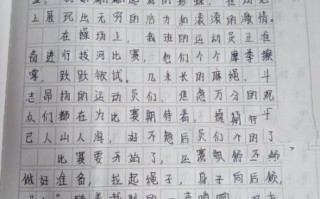 上展现出无穷的活力和滚滚的激情。
在操场上，我班的运动员正准
备进行拔河比赛，他们个个摩拳擦
掌，跃跃欲试。几米长的麻绳，斗
志昂扬的运动员们，焦急万分的观
众们都在为比赛期待着。操场
已人山人海，好不热
比赛要开始了，
做好准备，拉起绳子，身子向后倾，